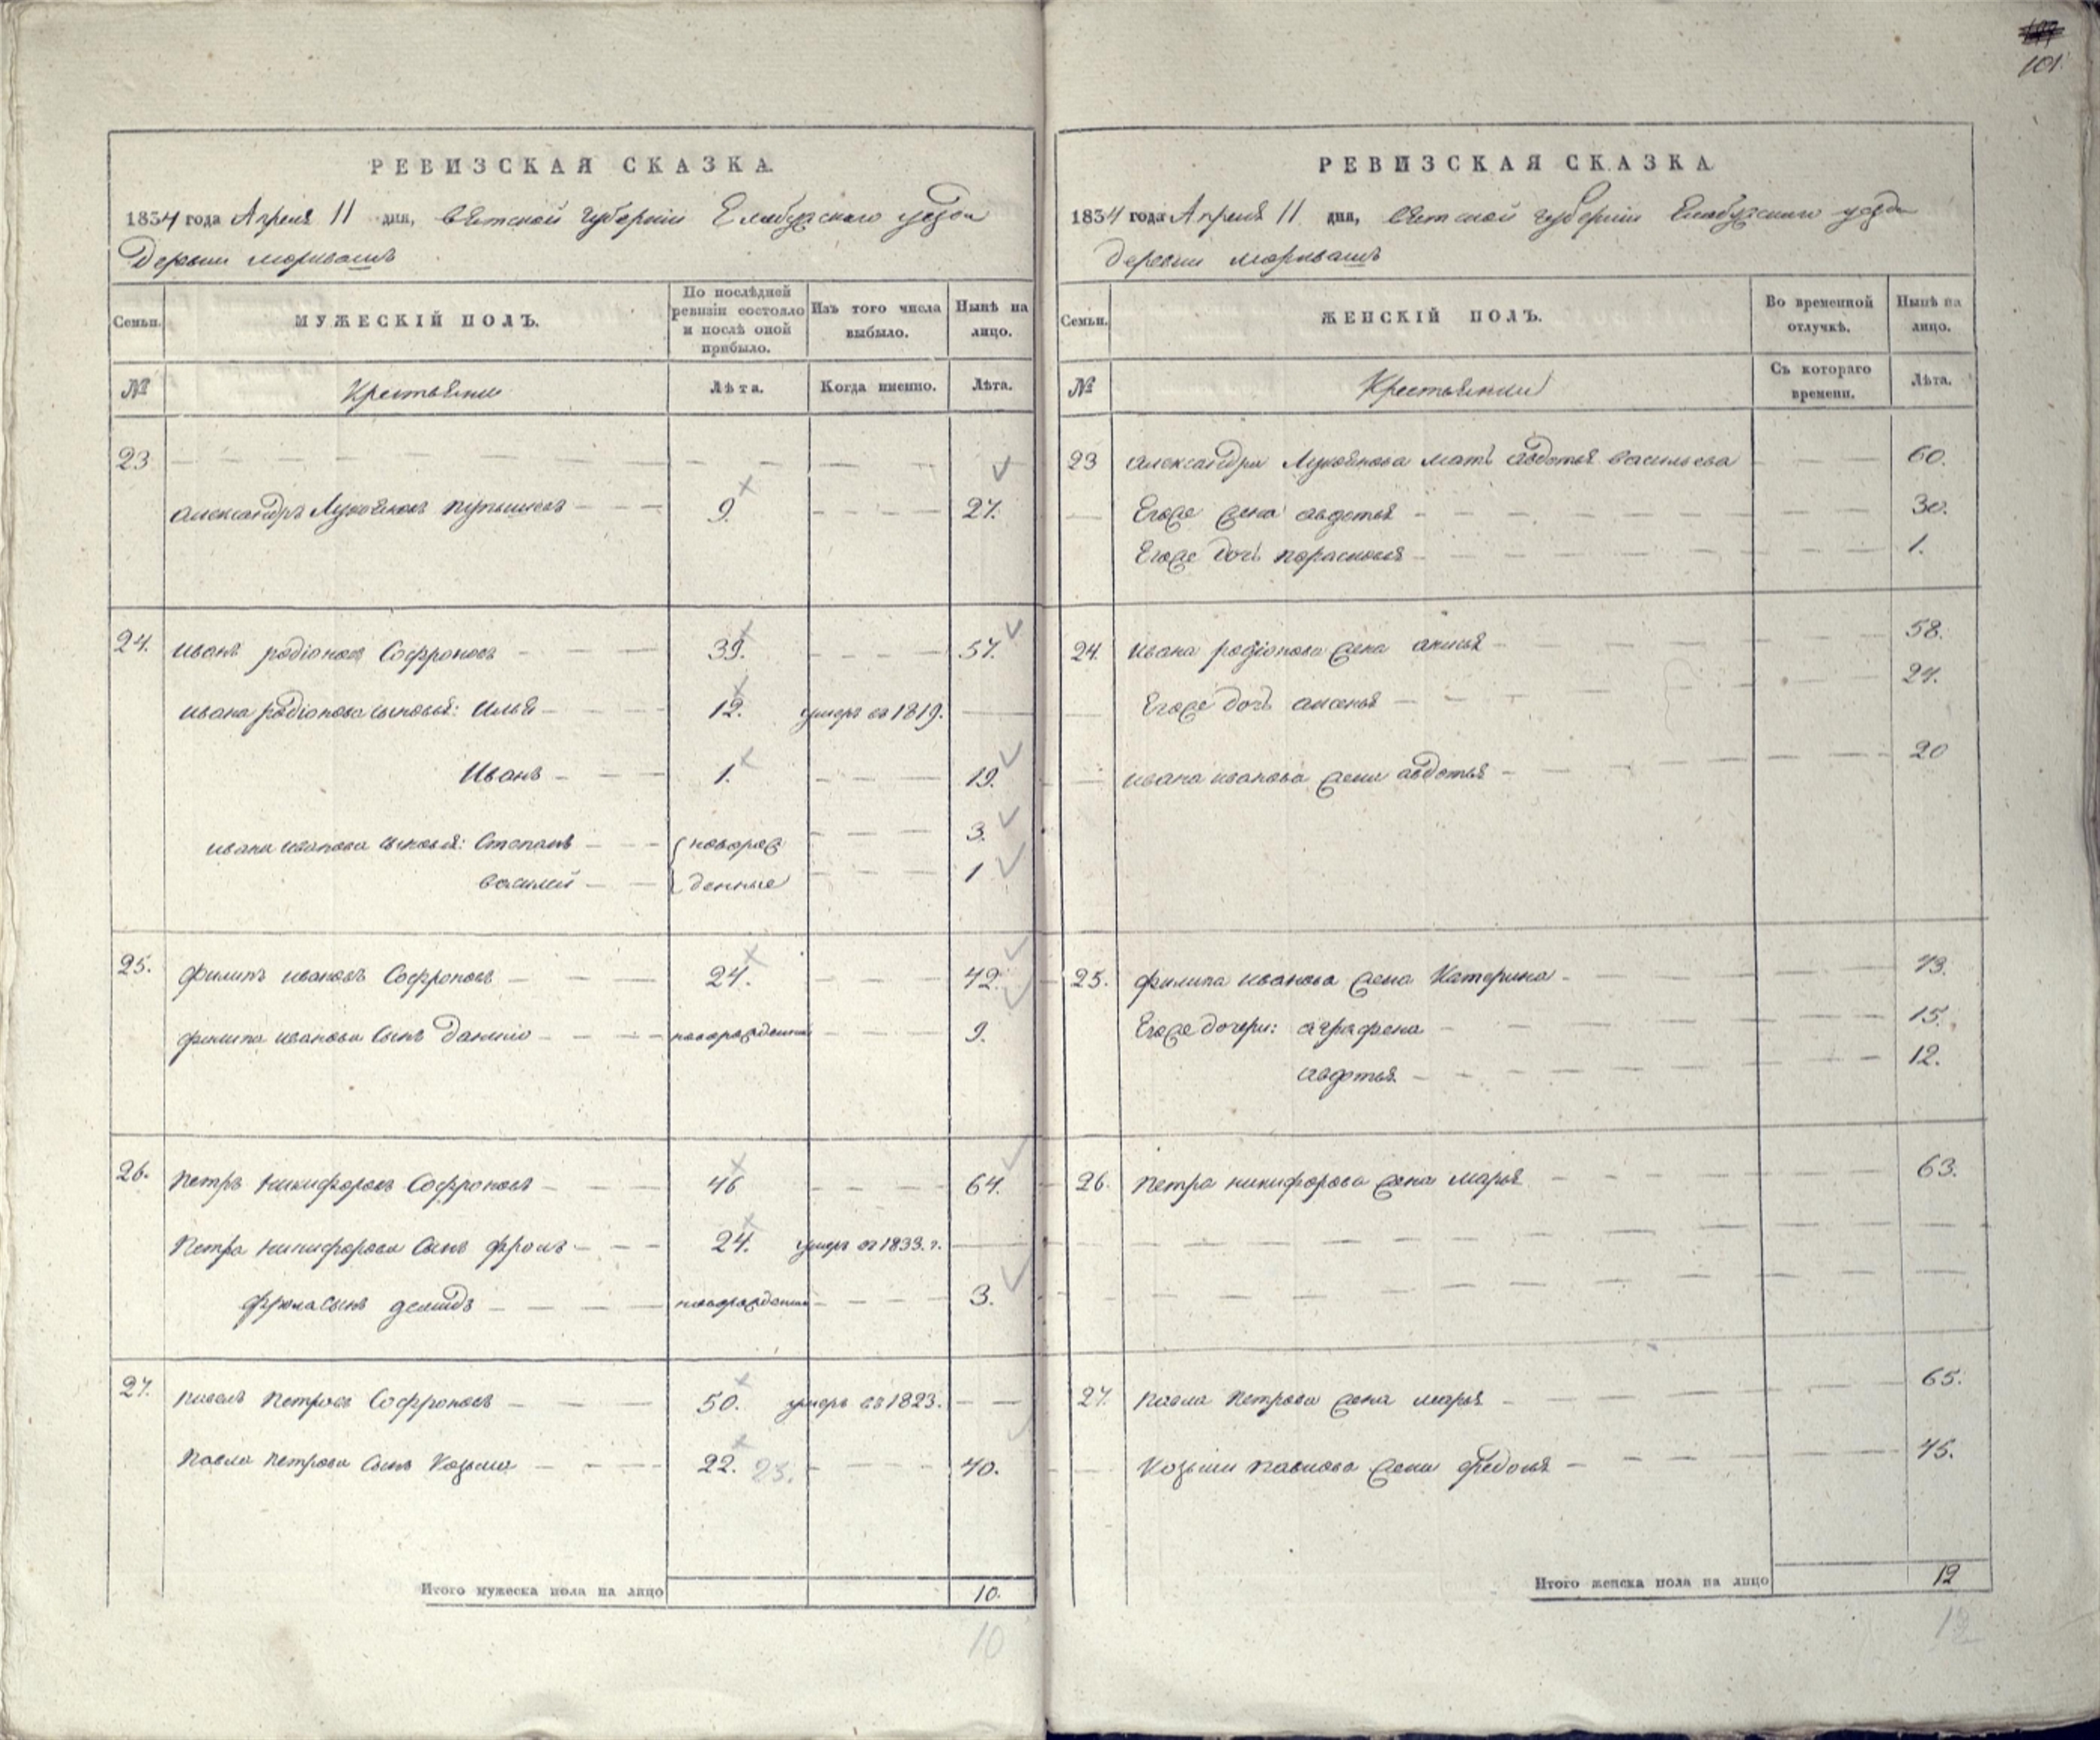 101.
РЕВИЗСКАЯ СКАЗКА
1834 года Апреля 11 дня, Вятской губернiи Елабугского уезда
Деревни Морквашъ
Семьи. МУЖЕСКІЙ ПОЛЪ. По послѣдней ревизіи состояло и послѣ оной прибыло. Изъ того числа выбыло. Нынѣ на лицо.
№ Крестьяне Лѣта. Когда именно. Лѣта.
23
Александръ Лукояновъ 9. 27.
24. Иванъ Родiоновъ Софроновъ 39. 57.
Ивана Родiонова сыновья: Илья 12. умеръ въ 1819.
Иванъ 1. 19.
Ивана Иванова сыновья: Степанъ новорож 3.
Василей денные 1
25. Филипъ Ивановъ Софроновъ 24. 42.
Филипа Иванова сынъ Данило новорожденный 9.
26. Петръ Никифоровъ Софроновъ 46 64.
Петра Никифорова сынъ Фролъ 24. умеръ въ 1833. г.
Фрола сынъ Демидъ новорожденный 3.
27. Павелъ Петровъ Софроновъ 50. умеръ въ 1823.
Павла Петрова сынъ Козьма 22. 23. 40.
Итого мужеска пола на лицо 10.
10
РЕВИЗСКАЯ СКАЗКА
1834 года Апреля 11 дня, Вятской губернiи Елабугского уезда
Деревни Морквашъ
Семьи. ЖЕНСКІЙ ПОЛЪ. Во временной отлучкѣ. Нынѣ на лицо.
№ Крестьянки Съ котораго времени. Лѣта.
23 Александра Лукоянова мать Авдотья Васильева 60.
Егоже жена Авдотья 30.
Егоже дочь Парасковья 1.
24. Ивана Родiонова жена Анисья 58.
Егоже дочь Аксенья 27.
Ивана Иванова жена Авдотья 20
25. Филипа Иванова жена Катерина 43.
Егоже дочери: Аграфена 15.
Авдотья 12.
26. Петра Никифорова жена Марья 63.
27. Павла Петрова жена Марья 65.
Козьмы Павлова жена Федосья 45.
Итого женска пола на лицо 12
12